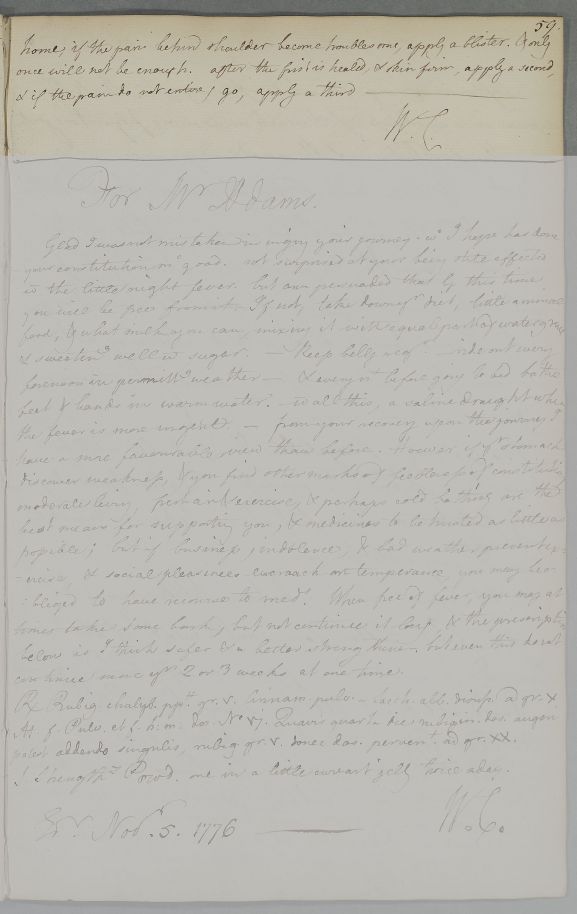 59
home, if the pain behind shoulder become troublesome, apply a blister. & only
once will not be enough. after the first is healed, & skin firm, apply a second,
& if the pain do not entirely go, apply a third
W. C.
For Mr Adams.
Glad I was not mistaken in urging your journey. wc I hope has done
your constitution mc good. not surprised at your being still affected
wt the little night fever. but am persuaded that by this time
you will be free from it. If not, take down yr diet, little animal
food, & what milk you can, mixing it with equal part of water gruel
& sweetend well wt sugar. — Keep belly reg. — ride out every
forenoon in permittg weather — & every nt before going to bed bathe
feet & hands in warm water. — wt all this, a saline draught when
the fever is more urgent — from your recovery upon the journey I
have a more favourable view than before. However if yr stomach
discover weakness, & you find other marks of feebleness of constitution
moderate living, exercise, & perhaps cold bathing are the
best means for supporting you, & medicines to be trusted as little as
possible; but if business, indolence, & bad weather prevent ex-
-ercise, & social pleasures encroach on temperance, you may be o-
-bliged to have recourse to medt. When free of fever, you may at
times take some bark, but not continue it long, & the prescript
below is I think safer & a better strengthener, but even this do not
continue more yn 2 or 3 weeks at one time.
Rx Rubig. chalyb. ppt. gr. v. Cinnam. pulv. — sacch. alb. āā gr. x
M. f. Pulv. et f. h. m. dos. No vj. Quavis quarta die rubigin. dos. augeri
potest addendo singulis, rubig gr. v. donec dos. pervent. ad gr. xx.
Strengthg Powd. one in a little currant jelly twice a day.
Edr. Novr. 5. 1776
W. C.